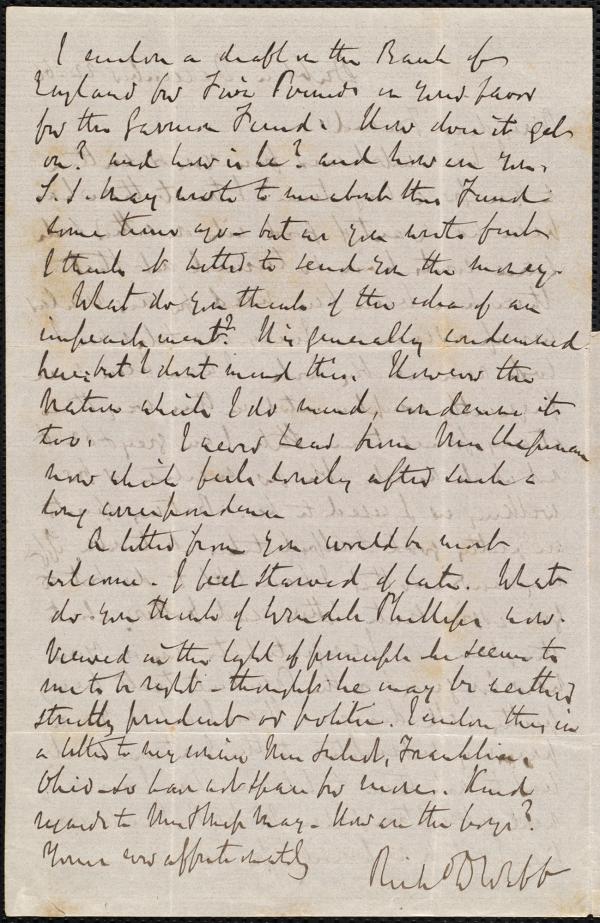 I enclose a draft on the Bank of
England for Five Pounds in your favor
for the Garrison Fund. How does it get
on? and how is he? and how are you.
S. J. May wrote to me about this Fund
some time ago – but as you wrote first
I think it better to send you the money.
What do you think of the idea of an
impeachment? It is generally condemned
here, but I don't mind this. However the
Nation which I do mind, condemns it
too. I never hear from Mrs Chapman
now which feels lonely after such a
long correspondence
A letter from you would be most
welcome. I feel starved of late. What
do you think of Wendell Phillips now.
Viewed in the light of principle he seems to
me to be right – though he may be neither
strictly prudent or politic. I enclose this in
a letter to my cousin Mrs, Franklin,
Ohio – so have not space for more. Kind
regards to Mrs & Miss May – How are the boys?
Yours ever affectionately
Rich D Webb